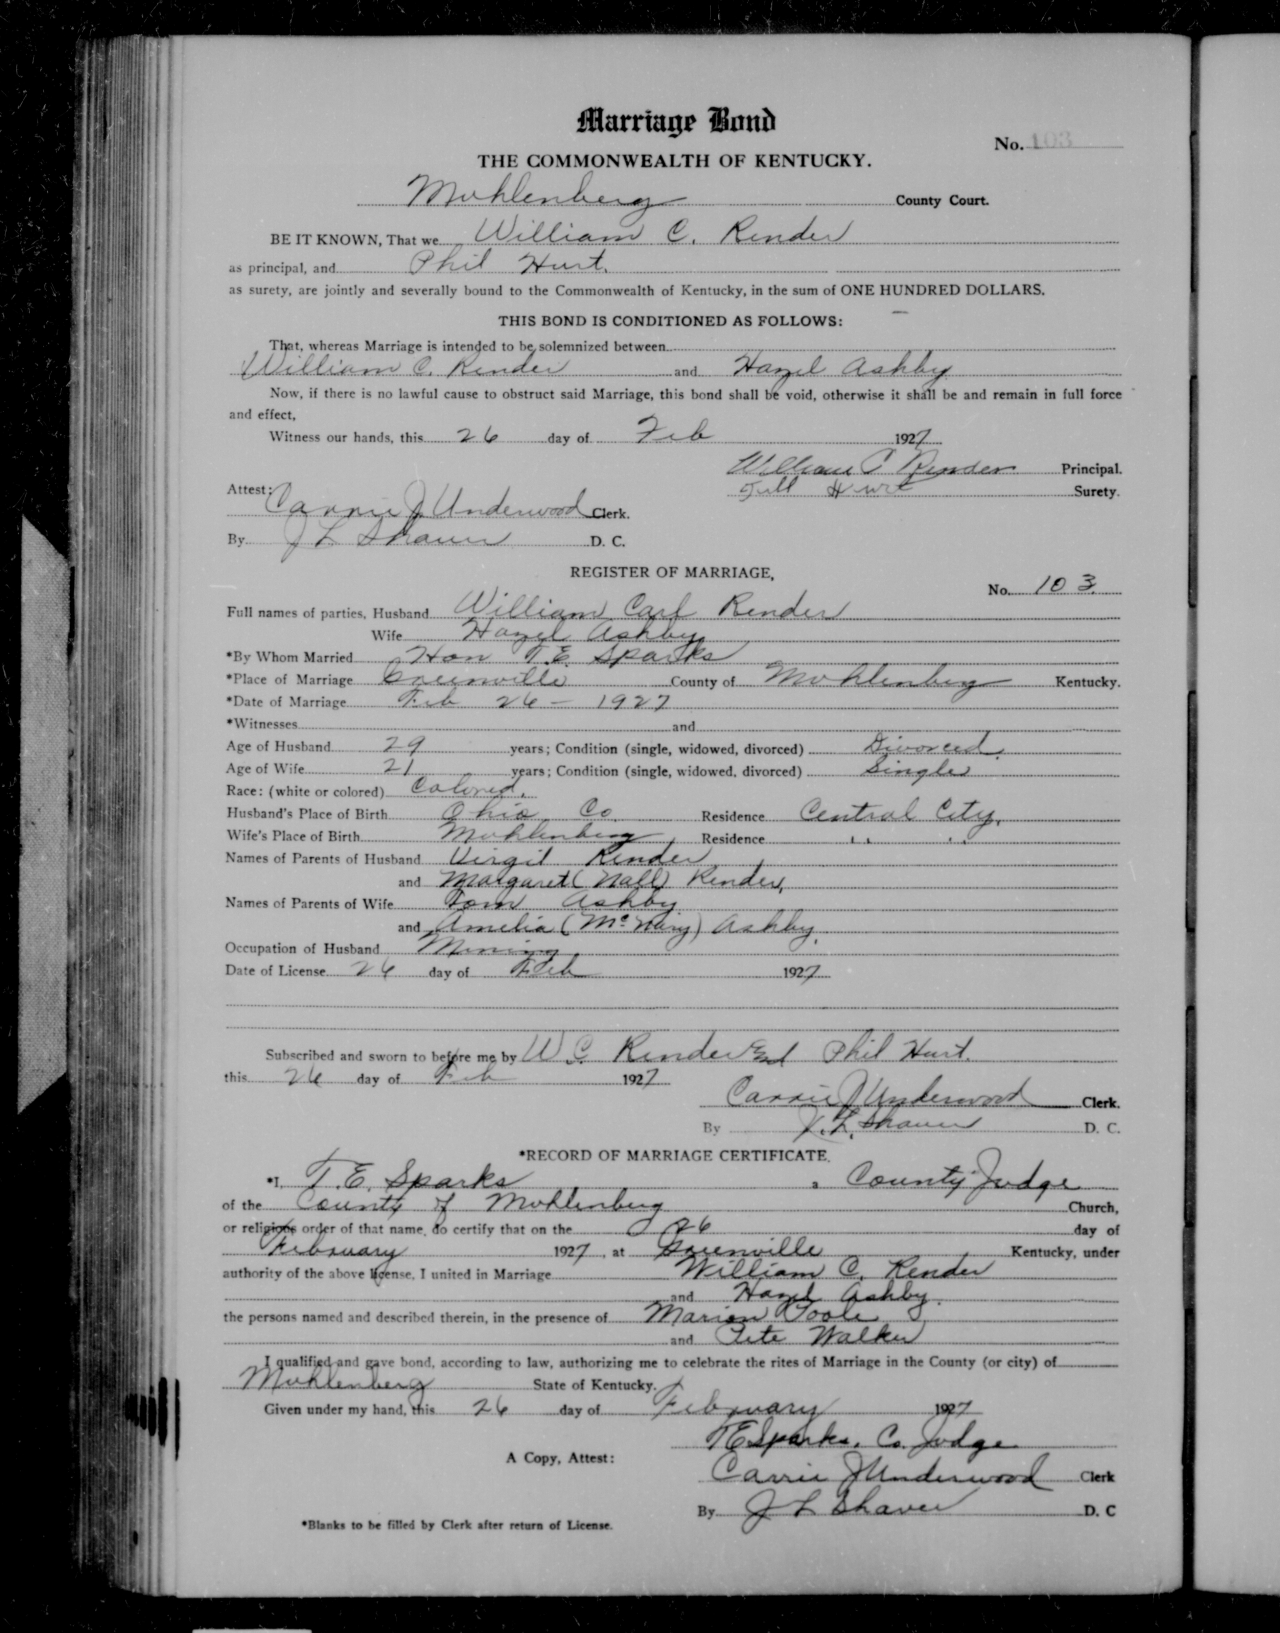 Marriage Bond
No. 103
THE COMMONWEALTH OF KENTUCKY.
Muhlenberg County Court.
BE IT KNOWN, That we William C. Render
as principal, and Phil Hurt.
as surety, are jointly and severally bound to the Commonwealth of Kentucky, in the sum of ONE HUNDRED DOLLARS.
THIS BOND IS CONDITIONED AS FOLLOWS:
That, whereas Marriage is intended to be solemnized between
William C. Render and Hazel Ashby
Now, if there is no lawful cause to obstruct said Marriage, this bond shall be void, otherwise it shall be and remain in full force
and effect,
Witness our hands, this 26 day of Feb 1927
William C Render Principal.
Attest: Hurt Surety.
Carrie J. Underwood Clerk.
By J L Shaver D. C.
REGISTER OF MARRIAGE,
No. 103.
Full names of parties, Husband William Carl Render
Wife Hazel Ashby
*By Whom Married Hon T.E. Sparks
*Place of Marriage Greenville County of Muhlenberg Kentucky.
*Date of Marriage Feb 26 - 1927
*Witnesses and
Age of Husband 29 years; Condition (single, widowed, divorced) Divorced.
Age of Wife 21 years; Condition (single, widowed, divorced) Single
Race: (white or colored) Colored.
Husband's Place of Birth Ohio Co. Residence Central City.
Wife's Place of Birth Muhlenberg Residence " "
Names of Parents of Husband Virgil Render
and Margaret (Nall) Render,
Names of Parents of Wife Tom Ashby
and Amelia (McNary) Ashby.
Occupation of Husband Mining
Date of License 26 day of Feb 1927
Subscribed and sworn to before me by W.C. Render and Phil Hurt.
this 26 day of Feb 1927
Carrie J Underwood Clerk.
By J. L. Shaver D. C.
*RECORD OF MARRIAGE CERTIFICATE.
*I, T. E. Sparks, County Judge
of the County of Muhlenberg Church,
or religious order of that name, do certify that on the 26 day of
February 1927, at Greenville Kentucky, under
authority of the above license, I united in Marriage William C. Render
and Hazel Ashby.
the persons named and described therein, in the presence of Marion Poole
and Pete Walker
I qualified and gave bond, according to law, authorizing me to celebrate the rites of Marriage in the County (or city) of
Muhlenberg State of Kentucky.
Given under my hand, this 26 day of February 1927
T E Sparks, Co. Judge
A Copy, Attest:
Carrie J Underwood Clerk
By J L Shaver D. C
*Blanks to be filled by Clerk after return of License.